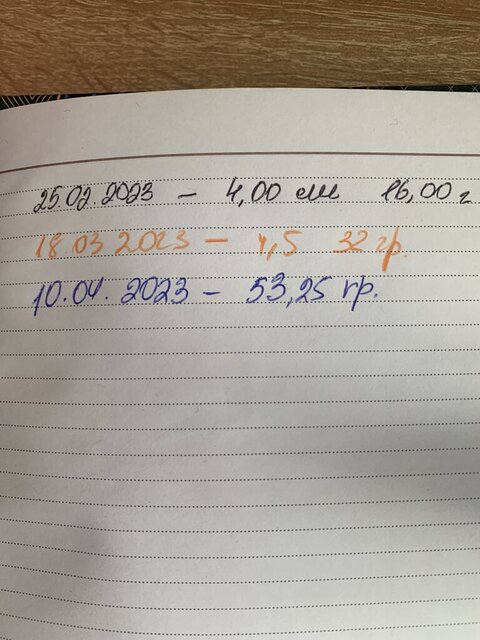 25.02 2023 – 4,00 см 16,00 г
18.03 2023 – 4,5 32 гр.
10.04. 2023 – 53,25 гр.